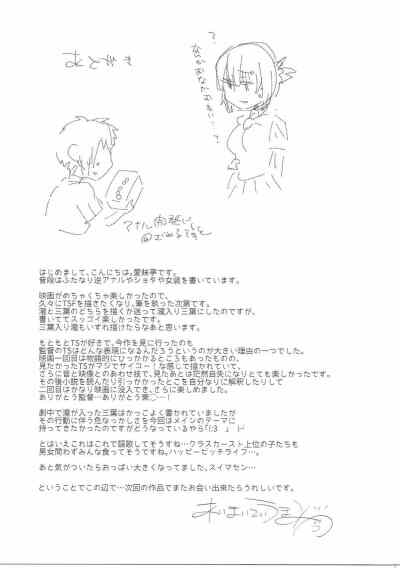 あとがき
?
?
はじめまして、こんにちは。愛昧亭です。
普段はふたなり逆アナルやショタや女装を書いています。
映画がめちゃくちゃ楽しかったので、
久々にTSFを描きたくなり、筆を執った次第です。
瀧と三葉のどちらを描くか迷って瀧入り三葉にしたのですが、
書いててスッゴイ楽しかったです。
三葉入り瀧もいずれ描けたらなあと思います。
もともとTSが好きで、今作を見に行ったのも
監督のTSはどんな表現になるんだろうというのが大きい理由の一つでした。
映画一回目は物語的にひっかかるところもあったものの、
見たかったTSがマジでサイコー！な感じで描かれていて、
さらに音と映像とのあわせ技で、見たあとは茫然自失になりとても楽しかったです。
その後小説を読んだり引っかかったとこを自分なりに解釈したりして
二回目はかなり映画に没入でき、さらに楽しめました。
ありがとう監督…ありがとう東◯…!
劇中で瀧が入った三葉はかっこよく書かれていましたが
その行動に伴う危なっかしさを今回はメインのテーマに
持ってきたかったのですがどうなっているやら「(:3　」　ﾄ
とはいえこれはこれで謳歌してそうすね…クラスカースト上位の子たちも
男女問わずみんな食ってそうですね。ハッピービッチライフ…。
あと気がついたらおっぱい大きくなってました、スイマセン…
ということでこの辺で…次回の作品でまたお会い出来たらうれしいです。